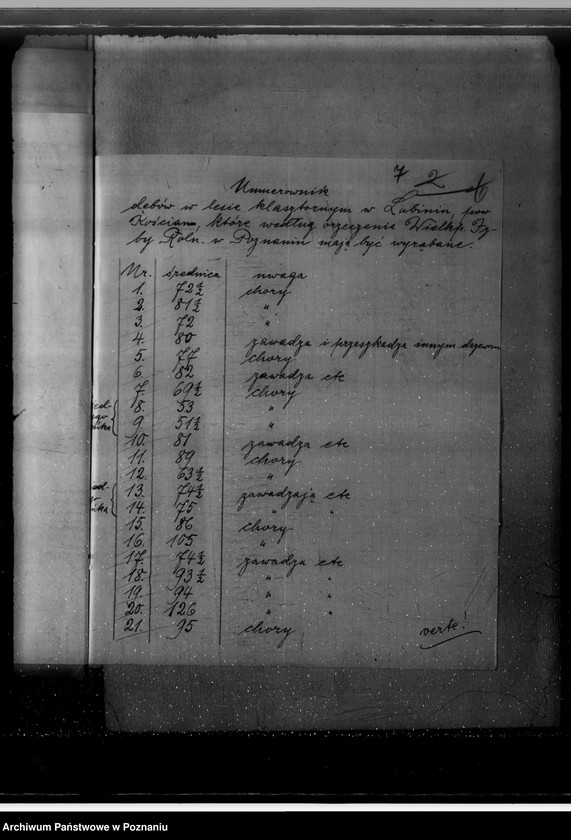 7 2 6
Numerownik
dębów w lesie klasztornym w Lubiniu, pow.
Kościan, które według orzeczenia Wielkp. Iz-
by Roln. w Poznaniu mają być wyrąbane.
Nr. średnica uwaga
1. 72½ chory
2. 81½ "
3. 72 "
4. 80 zawadza i przeszkadza innym drzewom
5. 77 chory
6. 82 zawadza etc
7. 69½ chory
8. 53 "
9. 51½ "
10. 81 zawadza etc
11. 89 chory
12. 63½ "
13. 74½ zawadzają etc
14. 75 " "
15. 86 chory
16. 105 "
17. 74½ zawadza etc
18. 93½ " "
19. 94 " "
20. 126 " "
21. 95 chory
verte!
Archiwum Państwowe w Poznaniu